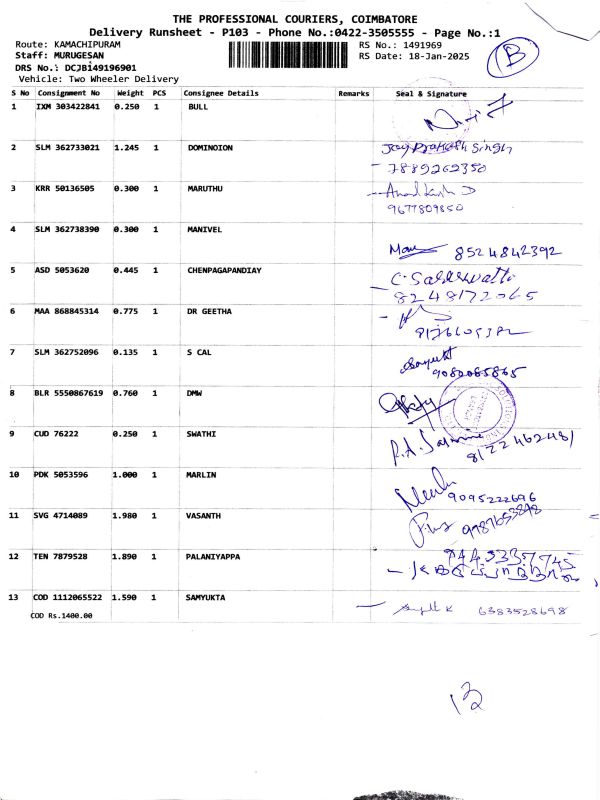 THE PROFESSIONAL COURIERS, COIMBATORE
Delivery Runsheet - P103 - Phone No.:0422-3505555 - Page No.:1
Route: KAMACHIPURAM RS No.: 1491969
Staff: MURUGESAN RS Date: 18-Jan-2025
DRS No.: DCJBI49196901
Vehicle: Two Wheeler Delivery
B
S No Consignment No Weight PCS Consignee Details Remarks Seal & Signature
1 IXM 303422841 0.250 1 BULL
2 SLM 362733021 1.245 1 DOMINOION Jay Prakash Singh
7889262350
3 KRR 50136505 0.300 1 MARUTHU
9677809850
4 SLM 362738390 0.300 1 MANIVEL
8524842392
5 ASD 5053620 0.445 1 CHENPAGAPANDIAY
8248172065
6 MAA 868845314 0.775 1 DR GEETHA
7 SLM 362752096 0.135 1 S CAL
9080085865
8 BLR 5550867619 0.760 1 DMW
9 CUD 76222 0.250 1 SWATHI
8122462481
10 PDK 5053596 1.000 1 MARLIN
9095222696
11 SVG 4714089 1.980 1 VASANTH
12 TEN 7879528 1.890 1 PALANIYAPPA
9443357745
13 COD 1112065522 1.590 1 SAMYUKTA
6383528698
COD Rs.1400.00
13